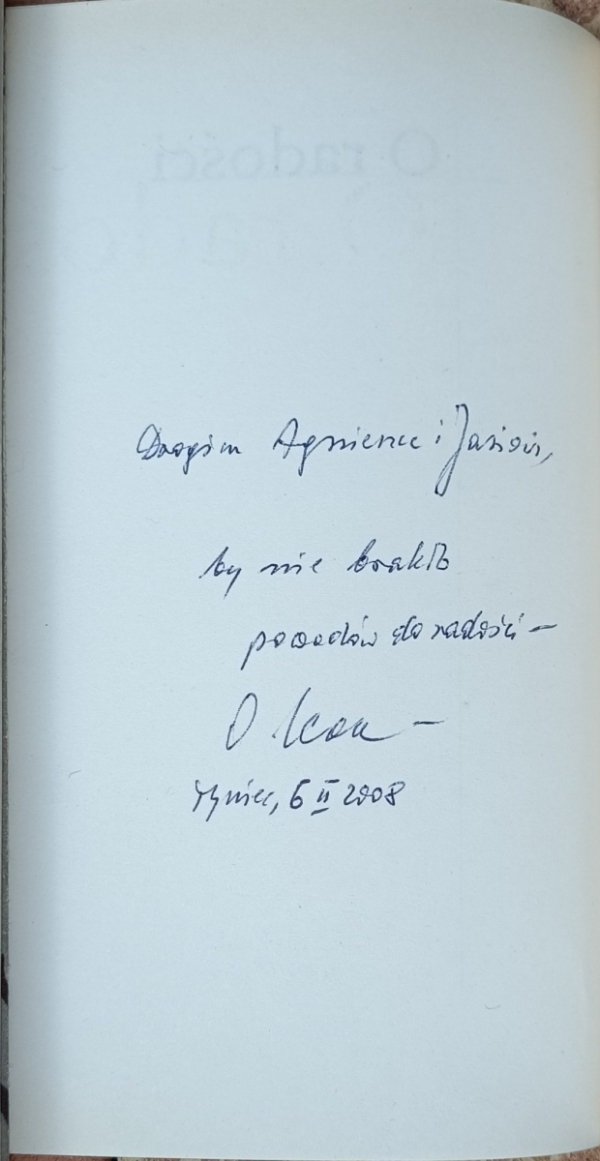 O radości
Drogim Agnieszce i Jasiowi,
by nie brakło
powodów do radości –
O. Leon –
Tyniec, 6 II 2008